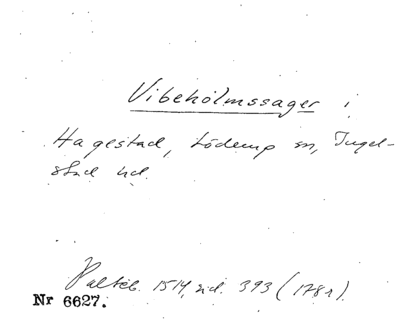 Vibeholmssager i
Hagestad, Löderup sn, Ingel-
stad hd.
Palteb. 1514, sid. 393 (178r).
Nr 6627.